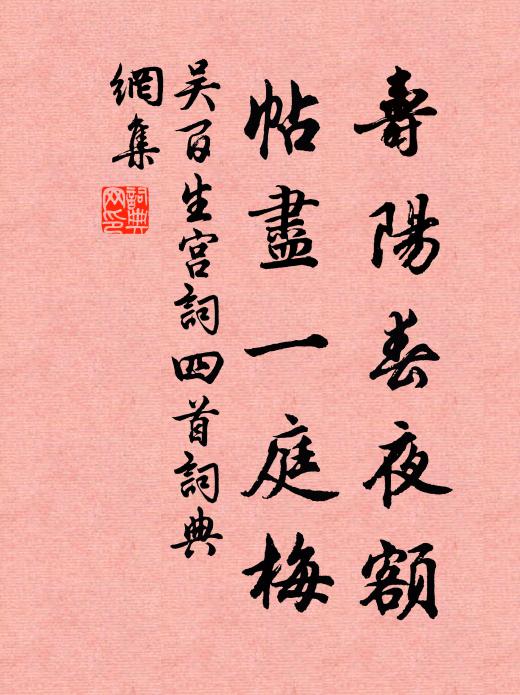 壽陽春夜額
帖盡一庭梅
吴百生宫詞四首詞典
網集
詞典
网印